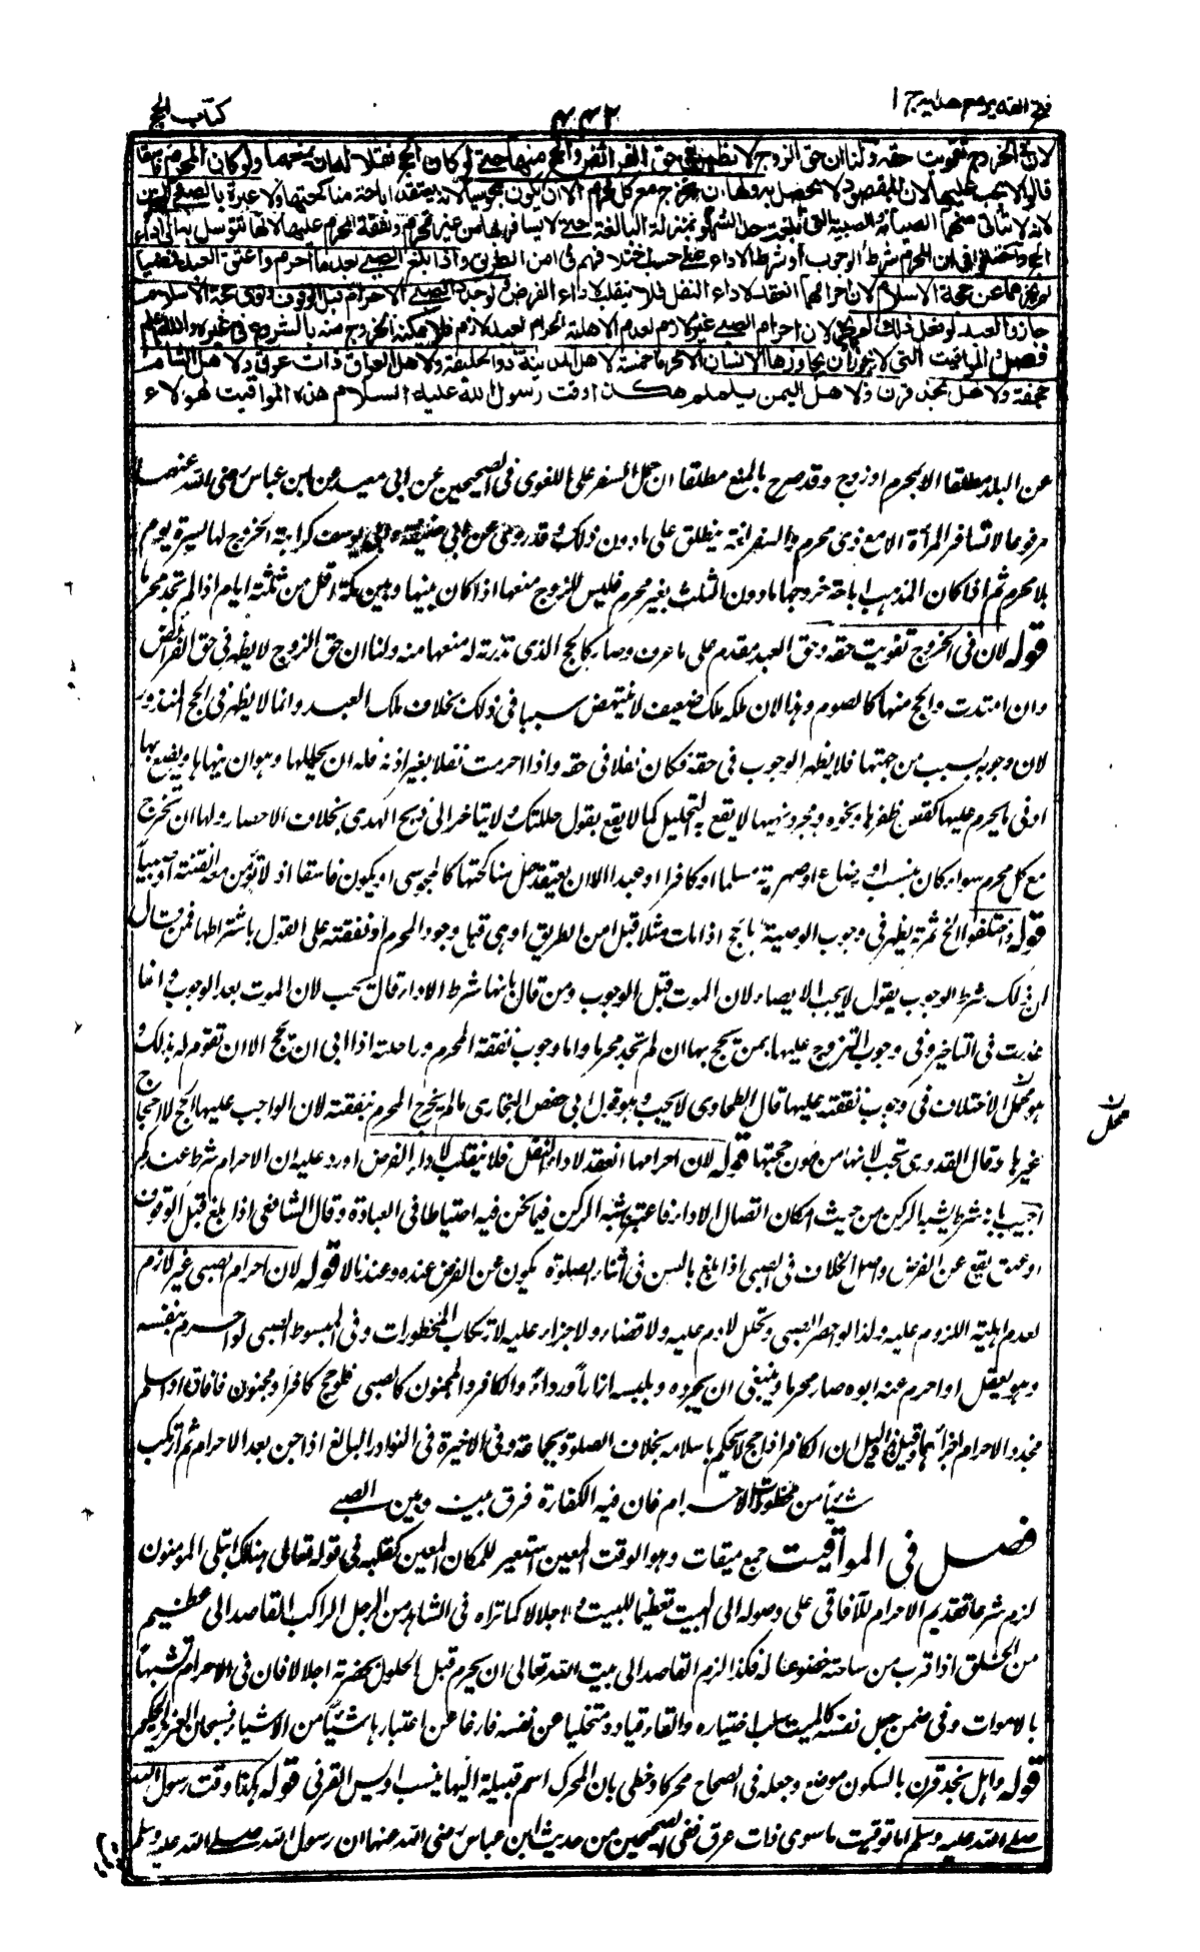 فتح القدير مع هدايه ج ١
٤٣٢
كتاب الحج
لان في الخروج تفويت حقه ولنا ان حق الزوج لا يظهر في حق الفرائض والحج منها حتى لو كان الحج نفلا له ان يمنعها ولو كان المحرم فاسقا
قالوا لا يجب عليها لان المقصود لا يحصل به ولها ان تخرج مع كل محرم الا ان يكون مجوسيا لانه يعتقد اباحة مناكحتها ولا عبرة بالصبي والمجنون
لانه لا تتأتى منهما الصيانة والصبية التي بلغت حد الشهوة بمنزلة البالغة حتى لا يسافر بها من غير محرم ونفقة المحرم عليها لانها تتوسل به الى اداء
الحج واختلفوا في ان المحرم شرط الوجوب او شرط الاداء على حسب اختلافهم في امن الطريق واذا بلغ الصبي بعد ما احرم واعتق العبد فمضيا
لم يجزهما عن حجة الاسلام لان احرامهما انعقد لاداء النفل فلا ينقلب لاداء الفرض ولو جدد الصبي الاحرام قبل الوقوف ونوى حجة الاسلام
جاز والعبد لو فعل ذلك لم يجز لان احرام الصبي غير لازم لعدم الاهلية اما احرام العبد لازم فلا يمكنه الخروج منه بالشروع في غيره والله اعلم
فصل والمواقيت التي لا يجوز ان يجاوزها الانسان الا محرما خمسة لاهل المدينة ذو الحليفة ولاهل العراق ذات عرق ولاهل الشام
جحفة ولاهل نجد قرن ولاهل اليمن يلملم هكذا وقت رسول الله عليه السلام هذه المواقيت لهؤلاء
عن البلد مطلقا الا بمحرم او زوج وقد صرح بالمنع مطلقا ان حمل السفر على اللغوى فى الصحيحين عن ابى معبد عن ابن عباس رضى الله عنهما
مرفوعا لا تسافر المرأة الا مع ذى محرم والسفر لغة ينطلق على ما دون ذلك وقد روى عن ابى حنيفة وابى يوسف كراهة الخروج لها مسيرة يوم
بلا محرم ثم اذا كان المذهب اباحة خروجها ما دون الثلث بغير محرم فليس للزوج منعها اذا كان بينها وبين مكة اقل من ثلثة ايام اذا لم تجد محرما
قوله لان فى الخروج تفويت حقه وحق العبد مقدم على ما عرف وصار كالحج الذى نذرته له منعها منه ولنا ان حق الزوج لا يظهر فى حق الفرائض
وان امتدت والحج منها كالصوم وهذا لان ملكه ملك ضعيف لا ينتهض سببا فى ذلك بخلاف ملك العبد وانما لا يظهر فى الحج المنذور
لان وجوبه بسبب من جهتها فلا يظهر الوجوب فى حقه فكان نفلا فى حقه واذا احرمت نفلا بغير اذنه فله ان يحللها وهو ان ينهاها ويصنع بها
ادنى ما يحرم عليها كقص ظفرها ونحوه ومجرد نهيها لا يقع به التحليل كما لا يقع بقول حللتك ولا يتأخر الى ذبح الهدى بخلاف الاحصار ولها ان تخرج
مع كل محرم سواء كان بنسب او رضاع او صهرية مسلما او كافرا او عبدا الا ان يعتقد حل مناكحتها كالمجوسى او يكون فاسقا اذ لا تؤمن معه الفتنة او صبيا
قوله واختلفوا الخ ثمرته يظهر فى وجوب الوصية بالحج اذا مات مثلا قبل امن الطريق او هى قبل وجود المحرم او نفقته على القول باشتراطها فمن قال
ان ذلك شرط الوجوب يقول لا يجب الايصاء لان الموت قبل الوجوب ومن قال بانها شرط الاداء قال يجب لان الموت بعد الوجوب وانما
عذرت فى التأخير وفى وجوب التزوج عليها بمن يحج بها ان لم تجد محرما واما وجوب نفقة المحرم وراحلته اذا ابى ان يحج الا ان تقوم له بذلك
هو محمل الاختلاف فى وجوب نفقته عليها قال الطحاوى لا يجب وهو قول ابى حفص البخارى ما لم يخرج المحرم بنفقته لان الواجب عليها الحج لا احجاج
محمل
غيرها وقال القدورى تجب لانها من مؤن حجتها قوله لان احرامهما انعقد لاداء النفل فلا ينقلب لاداء الفرض اورد عليه ان الاحرام شرط عندكم
اجيب بانه شرط يشبه الركن من حيث امكان اتصال الاداء فاعتبرنا شبه الركن فيما نحن فيه احتياطا فى العبادة وقال الشافعى اذا بلغ قبل الوقوف
او عتق يقع عن الفرض واصل الخلاف فى الصبى اذا بلغ بالسن فى اثناء الصلوة يكون عن الفرض عنده وعندنا لا قوله لان احرام الصبى غير لازم
لعدم اهلية اللزوم عليه ولذا لو احصر الصبى وتحلل لا دم عليه ولا قضاء ولا جزاء عليه لارتكاب المحظورات وفى المبسوط الصبى لو احرم بنفسه
وهو يعقل او احرم عنه ابوه صار محرما وينبغى ان يجرده ويلبسه ازارا ورداء والكافر والمجنون كالصبى فلو حج كافر او مجنون فافاق او اسلم
فجدد الاحرام اجزأهما وقيل هذا دليل ان الكافر اذا حج لا يحكم باسلامه بخلاف الصلوة بجماعة وفى الاخيرة فى النوادر البالغ اذا جن بعد الاحرام ثم ارتكب
شيئا من محظورات الاحرام فان فيه الكفارة فرق بينه وبين الصبى
فصل فى المواقيت جمع ميقات وهو الوقت المعين استعير للمكان المعين كقلبه فى قوله تعالى هنالك ابتلى المؤمنون
لزم شرعا تقديم الاحرام للآفاقى على وصوله الى البيت تعظيما للبيت واجلالا كما تراه فى الشاهد من ترجل الراكب القاصد الى عظيم
من الخلق اذا قرب من ساحته خضوعا له فكذا لزم القاصد الى بيت الله تعالى ان يحرم قبل الحلول بحضرته اجلالا فان فى الاحرام تشبها
بالاموات وفى ضمن جعل نفسه كالميت سلب اختياره والقاء قياده متخليا عن نفسه فارغا عن اعتبارها شيئا من الاشياء فسبحان العزيز الحكيم
قوله ولاهل نجد قرن بالسكون موضع وجعله فى الصحاح محركا وخطئ بان المحرك اسم قبيلة اليها ينسب اويس القرنى قوله هكذا وقت رسول الله
صلى الله عليه وسلم اما توقيت ما سوى ذات عرق ففى الصحيحين من حديث ابن عباس رضى الله عنهما ان رسول الله صلى الله عليه وسلم